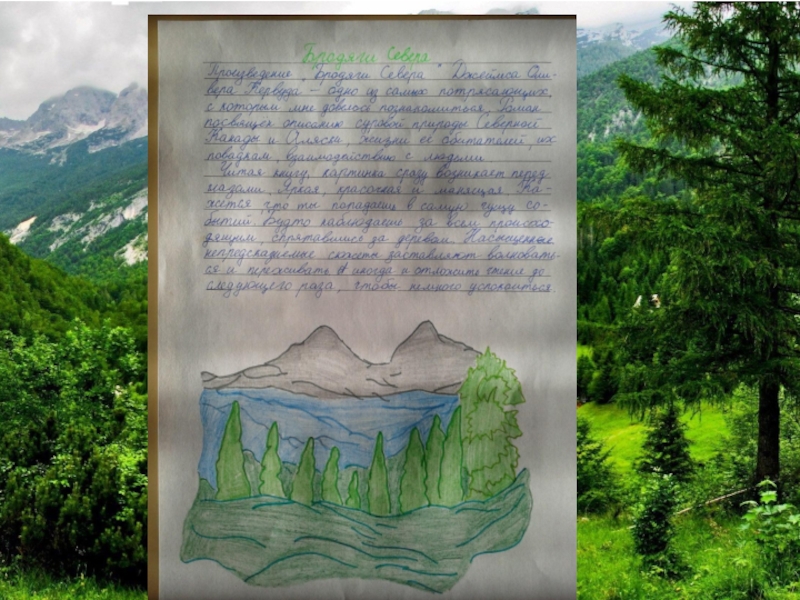 Бродяги Севера
Произведение „Бродяги Севера" Джеймса Оли-
вера Кервуда – одно из самых потрясающих,
с которым мне довелось познакомиться. Роман
посвящен описанию суровой природы Северной
Канады и Аляски, жизни её обитателей, их
повадкам, взаимодействию с людьми.
Читая книгу, картинка сразу возникает перед
глазами. Яркая, красочная и манящая. Ка-
жется, что ты попадаешь в самую гущу со-
бытий. Будто наблюдаешь за всем происхо-
дящим, спрятавшись за деревом. Насыщенные
непредсказуемые сюжеты заставляют волновать-
ся и переживать. А иногда и отложить чтение до
следующего раза, чтобы немного успокоиться.